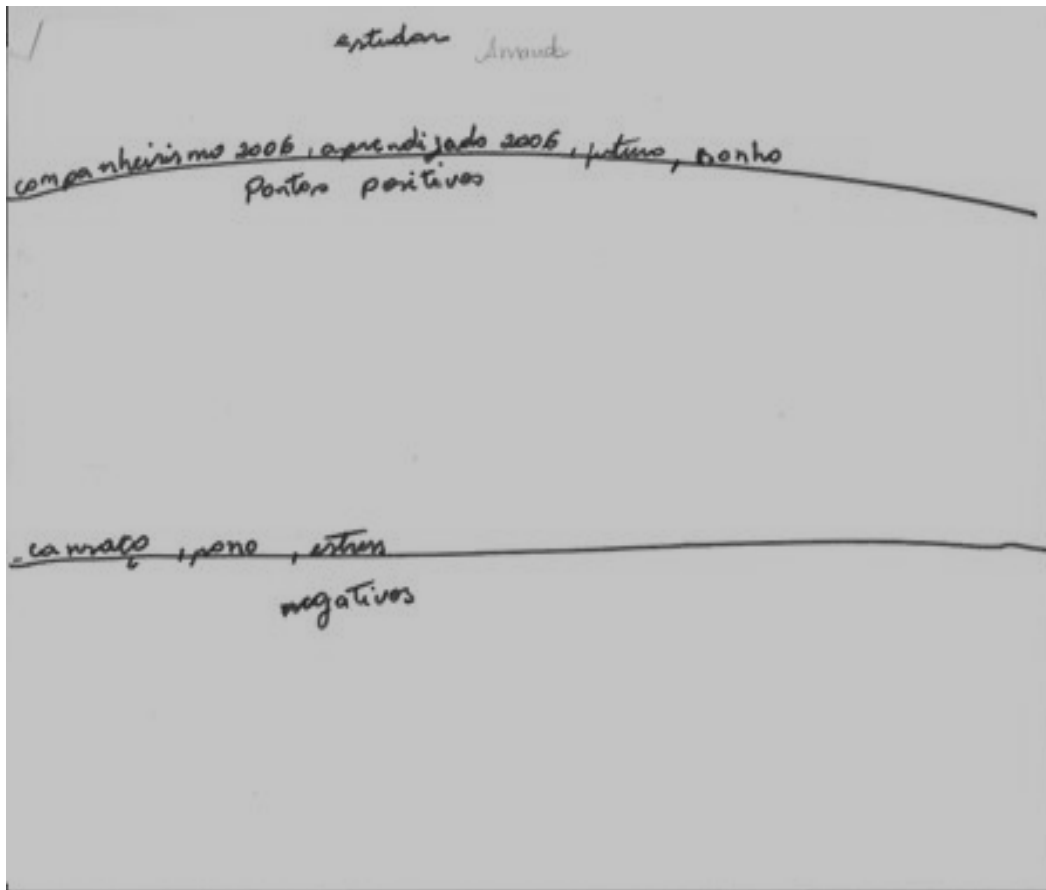 estudar Amanda
companheirismo 2006, aprendizado 2006, futuro, sonho
Pontos positivos
cansaço, sono, estres
negativos